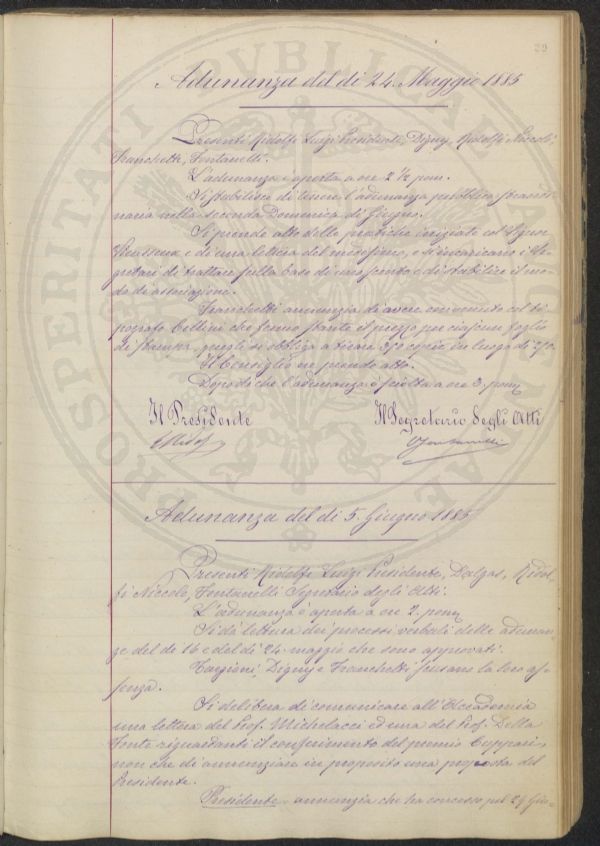 29
Adunanza del dì 24. Maggio 1885
Presenti Ridolfi Luigi Presidente, Digny, Ridolfi Niccolò,
Franchetti, Fontanelli.
L'adunanza è aperta a ore 2 ½ pom.
Si stabilisce di tenere l'adunanza pubblica straordi-
naria nella seconda Domenica di Giugno.
Si prende atto delle pratiche iniziate col Signor
Vieusseux e di una lettera del medesimo, e si incaricano i Se-
gretari di trattare sulla base di uno sconto e di stabilire il mo-
do di associazione.
Franchetti annunzia di avere convenuto col ti-
pografo Cellini che fermo stante il prezzo per ciascun foglio
di stampa, quegli si obbliga a tirare 350 copie in luogo di 250.
Il Consiglio ne prende atto.
Dopo di che l'adunanza è sciolta a ore 3. pom
Il Presidente Il Segretario degli Atti
LRidolfi CFontanelli
Adunanza del dì 5. Giugno 1885
Presenti Ridolfi Luigi Presidente, Dalgas, Ridol-
fi Niccolò, Fontanelli Segretario degli Atti.
L'adunanza è aperta a ore 2. pom
Si dà lettura dei processi verbali delle adunan-
ze del dì 16 e del dì 24 maggio che sono approvati.
Targioni, Digny e Franchetti scusano la loro as-
senza.
Si delibera di comunicare all'Accademia
una lettera del Prof. Michelacci ed una del Prof. Della
Fonte riguardanti il conferimento del premio Cuppari,
non che di annunziare in proposito una proposta del
Presidente.
Presidente annunzia che ha concesso pel 29 Giu-
PROSPERITATI PVBLICAE AVGENDAE